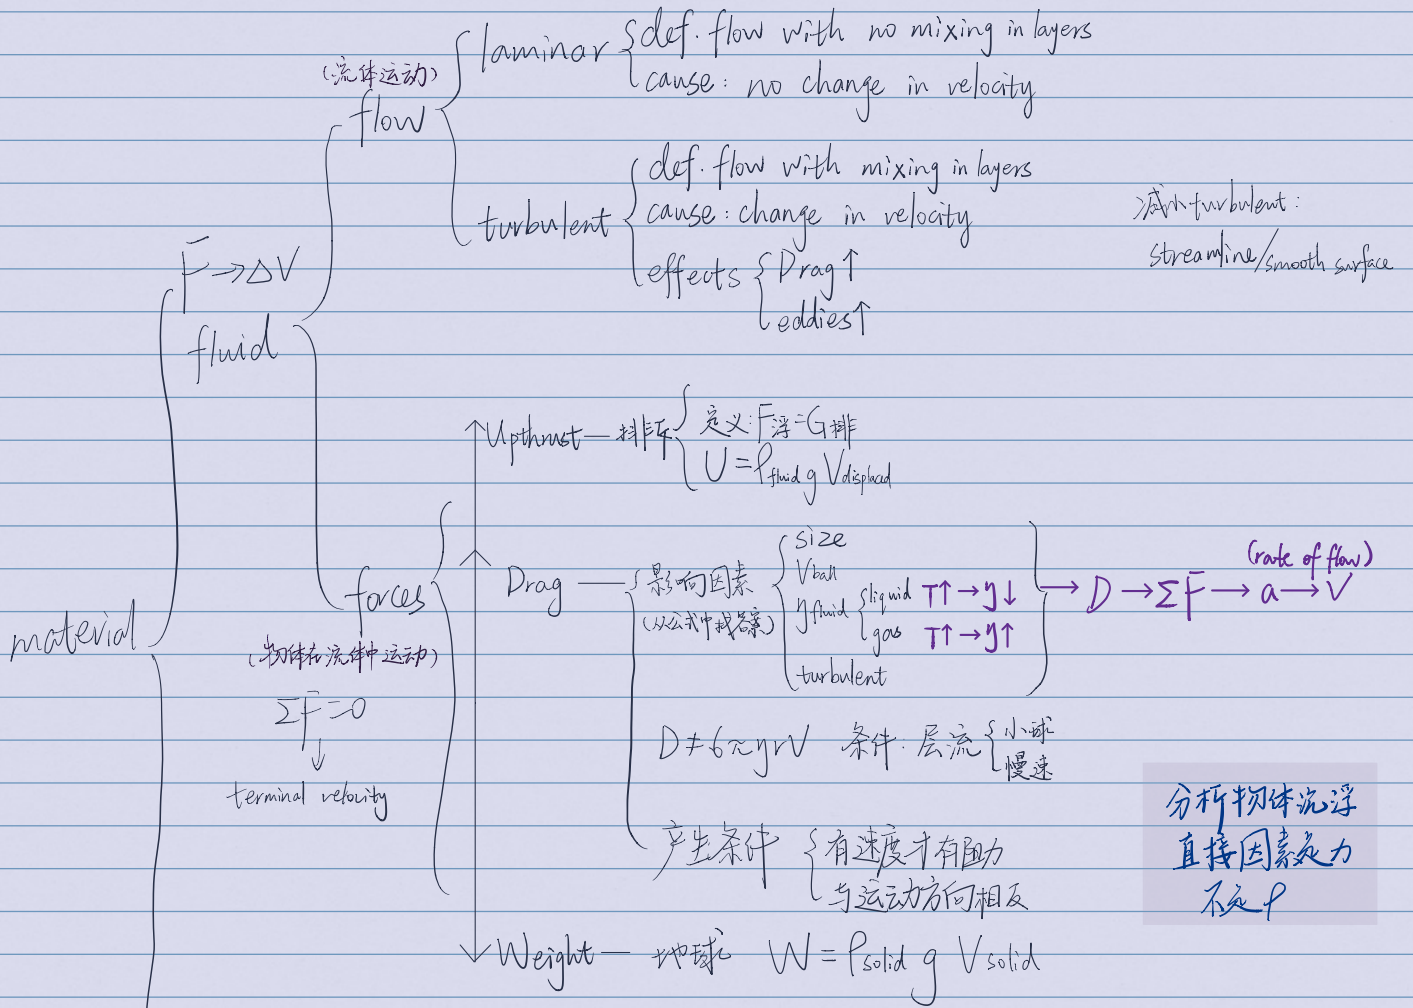 laminar
def. flow with no mixing in layers
cause: no change in velocity
(流体运动)
flow
turbulent
def. flow with mixing in layers
cause: change in velocity
effects
Drag↑
eddies↑
减小turbulent:
streamline/smooth surface
F→ΔV
fluid
material
forces
(物体在流体中运动)
ΣF=0
↓
terminal velocity
Upthrust—排开
定义:F浮=G排
U=ρfluid g Vdisplaced
Drag—
影响因素
(从公式中找答案)
size
Vball
ηfluid
liquid T↑→η↓
gas T↑→η↑
turbulent
→D→ΣF→a→V
(rate of flow)
D≠6πηrV 条件:层流
小球
慢速
产生条件
有速度才有阻力
与运动方向相反
Weight—地球 W=ρsolid g Vsolid
分析物体沉浮
直接因素是力
不是ρ